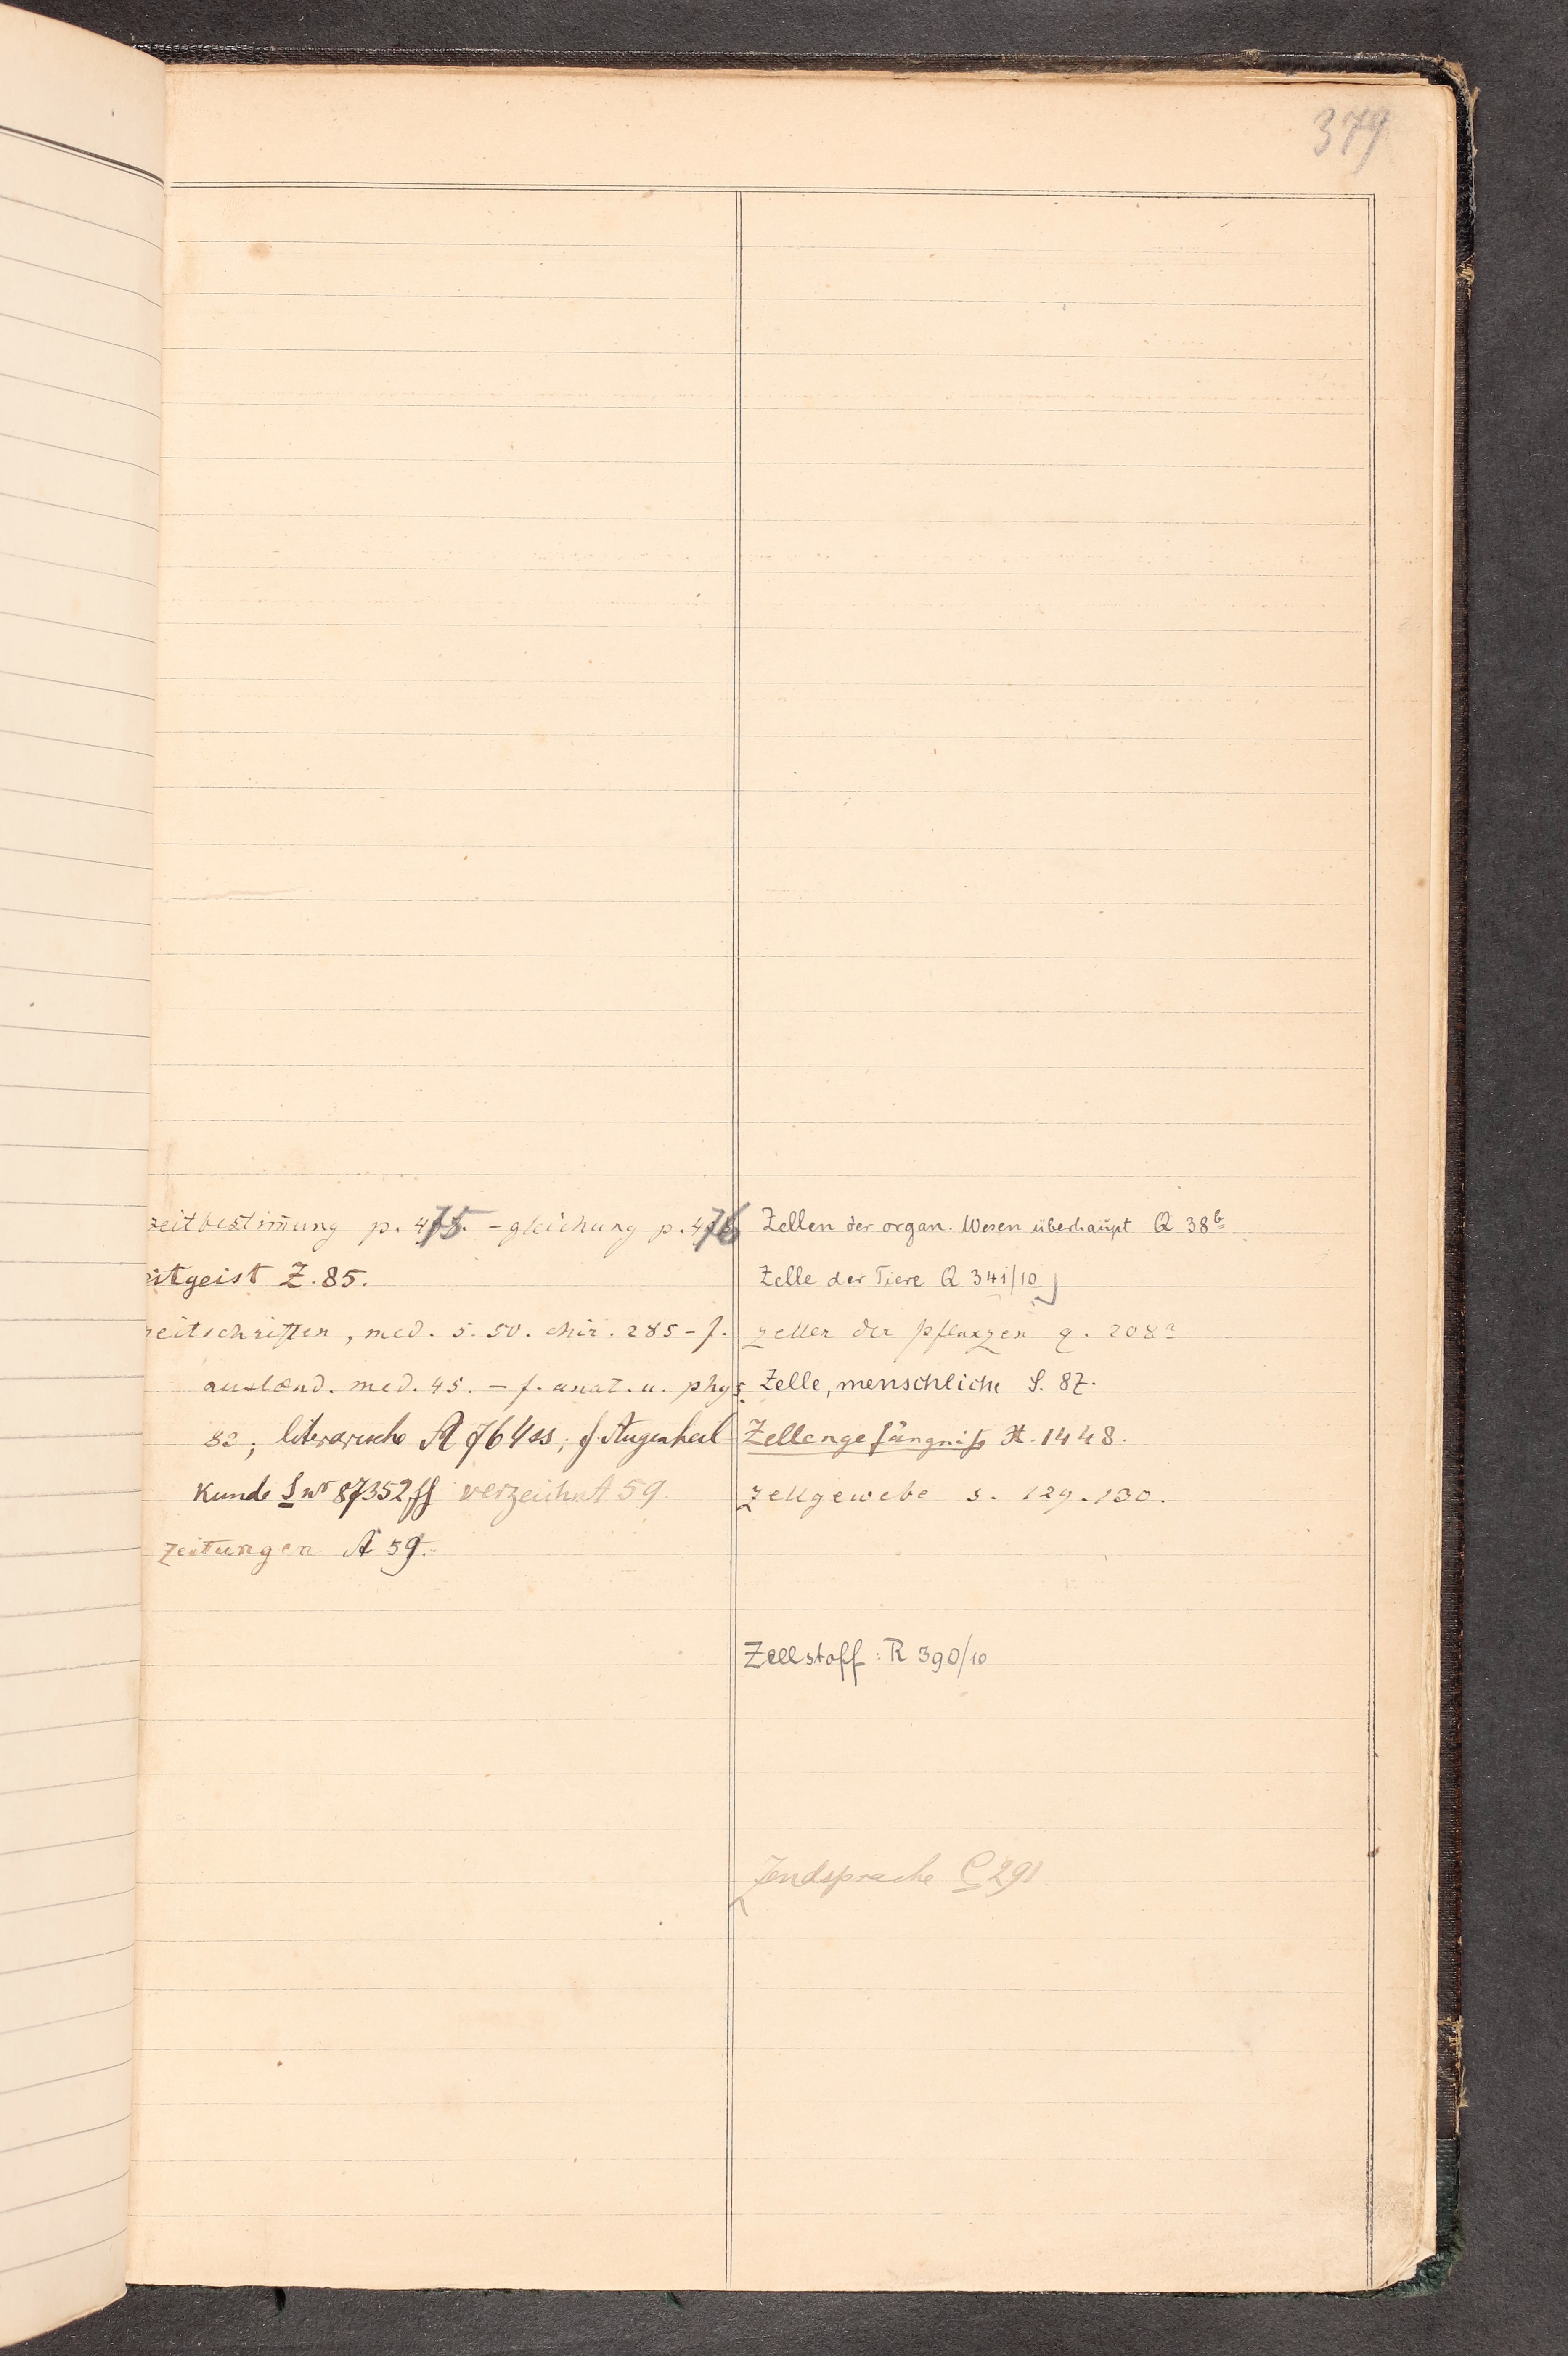 379
zeitbestim̄ung p. 475. - gleichung p. 476
eitgeist Z. 85.
zeitschriften, med. s. 50. chir. 285 - f.
ausländ. med. 45. - f. anat. u. phys.
82; literarische A 764ss; f. Augenheil
Kunde S nr 87352ff verzeichn A 59.
zeitungen A 59.
Zellen der organ. Wesen überhaupt Q 38b
Zelle der Tiere Q 341/10
zellen der pflanzen q. 208a
Zelle, menschliche S. 87.
Zellengefängniß H. 1448.
zellgewebe s. 129.130.
Zellstoff: R 390/10
Zendsprache C 291